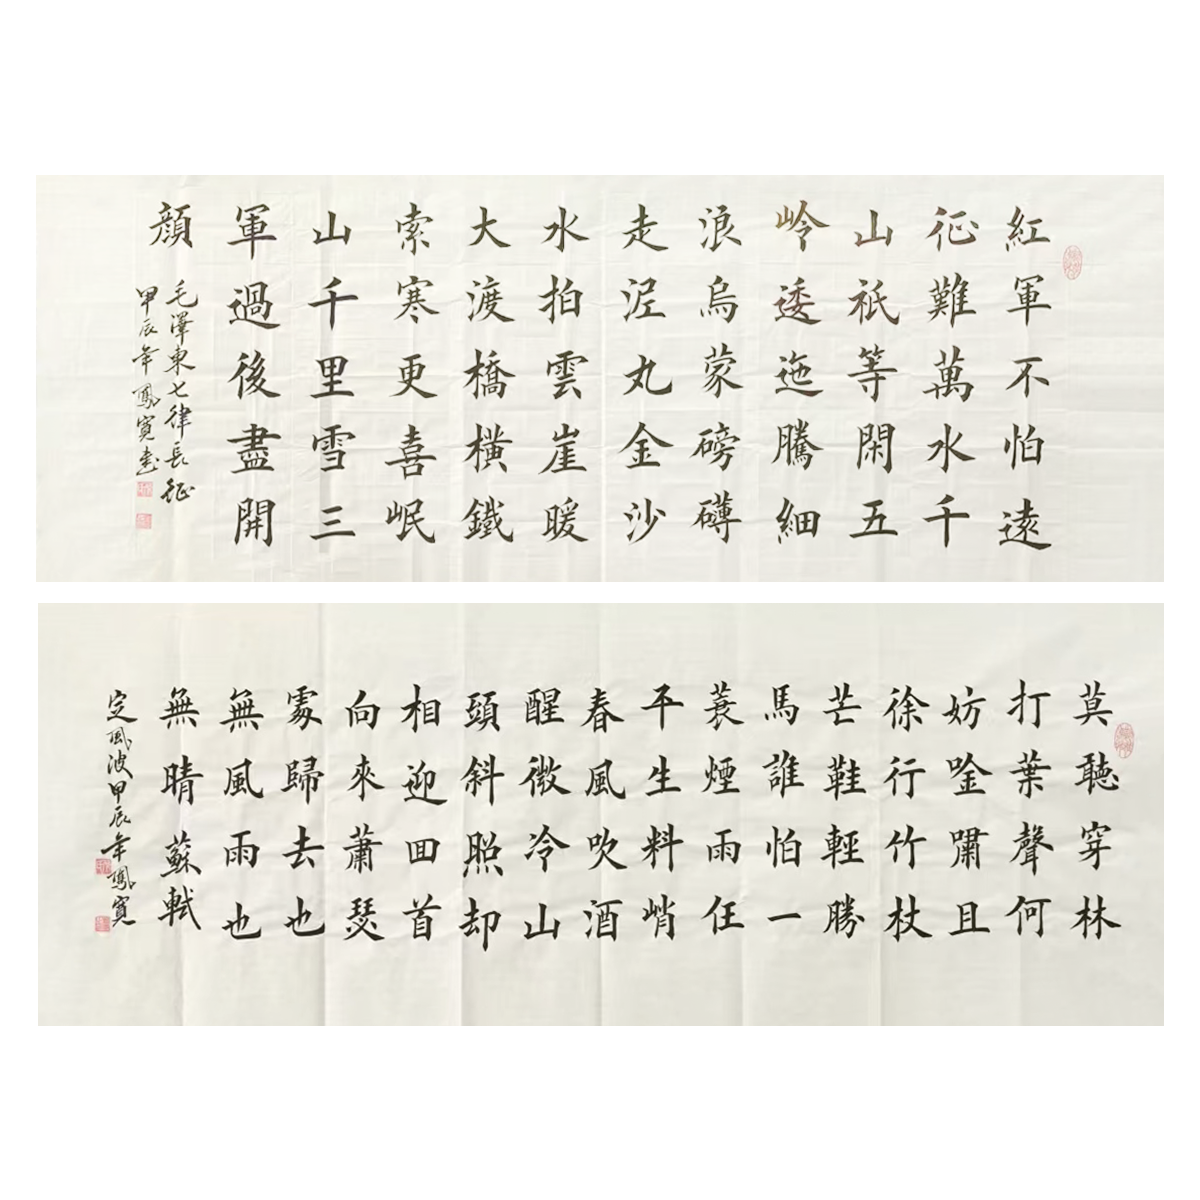 紅軍不怕遠
征難萬水千
山祇等閑五
岭逶迤騰細
浪烏蒙磅礴
走泥丸金沙
水拍雲崖暖
大渡橋橫鐵
索寒更喜岷
山千里雪三
軍過後盡開
顔
毛澤東七律長征
甲辰年鳳寬書
莫聽穿林
打葉聲何
妨唫嘯且
徐行竹杖
芒鞋輕勝
馬誰怕一
蓑煙雨任
平生料峭
春風吹酒
醒微冷山
頭斜照却
相迎回首
向來蕭瑟
處歸去也
無風雨也
無晴 蘇軾
定風波甲辰年鳳寬